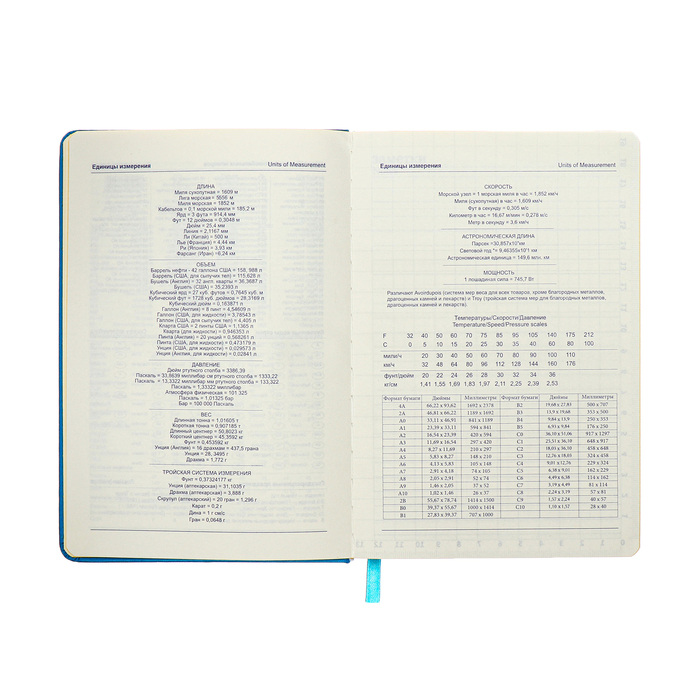 Единицы измерения Units of Measurement
ДЛИНА
Миля сухопутная = 1609 м
Лига морская = 5556 м
Миля морская = 1852 м
Кабельтов = 0,1 морской мили = 185,2 м
Ярд = 3 фута = 914,4 мм
Фут = 12 дюймов = 0,3048 м
Дюйм = 25,4 мм
Линия = 2,1167 мм
Ли (Китай) = 500 м
Лье (Франция) = 4,44 км
Ри (Япония) = 3,93 км
Фарсанг (Иран) = 6,24 км
ОБЪЕМ
Баррель нефти - 42 галлона США = 158, 988 л
Баррель (США, для сыпучих тел) = 115,628 л
Бушель (Англия) = 32 англ. кварты = 36,3687 л
Бушель (США) = 35,2393 л
Кубический ярд = 27 куб. футов = 0,7645 куб. м
Кубический фут = 1728 куб. дюймов = 28,3169 л
Кубический дюйм = 0,163871 л
Галлон (Англия) = 8 пинт = 4,54609 л
Галлон (США, для жидкости) = 3,78543 л
Галлон (США, для сыпучих тел) = 4,405 л
Кварта США = 2 пинты США = 1,1365 л
Кварта (США, для жидкости) = 0,946353 л
Пинта (Англия) = 20 унций = 0,568261 л
Пинта (США, для жидкости) = 0,473179 л
Унция (США, для жидкости) = 0,029573 л
Унция (Англия, для жидкости) = 0,02841 л
ДАВЛЕНИЕ
Дюйм ртутного столба = 3386,39
Паскаль = 33,8639 миллибар см ртутного столба = 1333,22
Паскаль = 13,3322 миллибар мм ртутного столба = 133,322
Паскаль = 1,33322 миллибар
Атмосфера физическая = 101 325
Паскаль = 1,01325 бар
Бар = 100 000 Паскаль
ВЕС
Длинная тонна = 1,01605 т
Короткая тонна = 0,907185 т
Длинный центнер = 50,8023 кг
Короткий центнер = 45,3592 кг
Фунт = 0,453592 кг
Унция (Англия) = 16 драхмам = 437,5 грана
Унция = 28, 3495 г
Драхма = 1,772 г
ТРОЙСКАЯ СИСТЕМА ИЗМЕРЕНИЯ
Фунт = 0,37324177 кг
Унция (аптекарская) = 31,1035 г
Драхма (аптекарская) = 3,888 г
Скрупул (аптекарский) = 20 гран = 1,296 г
Карат = 0,2 г
Дина = 1 г см/с
Гран = 0,0648 г
Единицы измерения Units of Measurement
СКОРОСТЬ
Морской узел = 1 морская миля в час = 1,852 км/ч
Миля (сухопутная) в час = 1,609 км/ч
Фут в секунду = 0,305 м/с
Километр в час = 16,67 м/мин = 0,278 м/с
Метр в секунду = 3,6 км/ч
АСТРОНОМИЧЕСКАЯ ДЛИНА
Парсек =30,857x10¹²км
Световой год = 9,46355x10¹² км
Астрономическая единица = 149,6 млн. км
МОЩНОСТЬ
1 лошадиная сила = 745,7 Вт
Различают Avoirdupois (система мер веса для всех товаров, кроме благородных металлов,
драгоценных камней и лекарств) и Troy (тройская система мер для благородных металлов,
драгоценных камней и лекарств).
Температуры/Скорости/Давление
Temperature/Speed/Pressure scales
F 32 40 50 60 70 75 85 95 105 140 175 212
C 0 5 10 15 20 25 30 35 40 60 80 100
мили/ч 20 30 40 50 60 70 80 90 100 110
км/ч 32 48 64 80 96 112 128 144 160 176
фунт/дюйм 20 22 24 26 28 30 32 34 36
кг/см 1,41 1,55 1,69 1,83 1,97 2,11 2,25 2,39 2,53
Формат бумаги Дюймы Миллиметры Формат бумаги Дюймы Миллиметры
4A 66,22 x 93,62 1682 x 2378 B2 19,68 x 27,83 500 x 707
2A 46,81 x 66,22 1189 x 1682 B3 13,9 x 19,68 353 x 500
A0 33,11 x 46,81 841 x 1189 B4 9,84 x 13,9 250 x 353
A1 23,39 x 33,11 594 x 841 B5 6,93 x 9,84 176 x 250
A2 16,54 x 23,39 420 x 594 C0 36,10 x 51,06 917 x 1297
A3 11,69 x 16,54 297 x 420 C1 25,51 x 36,10 648 x 917
A4 8,27 x 11,69 210 x 297 C2 18,03 x 36,10 458 x 648
A5 5,83 x 8,27 148 x 210 C3 12,76 x 18,03 324 x 458
A6 4,13 x 5,83 105 x 148 C4 9,01 x 12,76 229 x 324
A7 2,91 x 4,18 74 x 105 C5 6,38 x 9,01 162 x 229
A8 2,05 x 2,91 52 x 74 C6 4,49 x 6,38 114 x 162
A9 1,46 x 2,05 37 x 52 C7 3,19 x 4,49 81 x 114
A10 1,02 x 1,46 26 x 37 C8 2,24 x 3,19 57 x 81
2B 55,67 x 78,74 1414 x 1500 C9 1,57 x 2,24 40 x 57
B0 39,37 x 55,67 1000 x 1414 C10 1,10 x 1,57 28 x 40
B1 27,83 x 39,37 707 x 1000